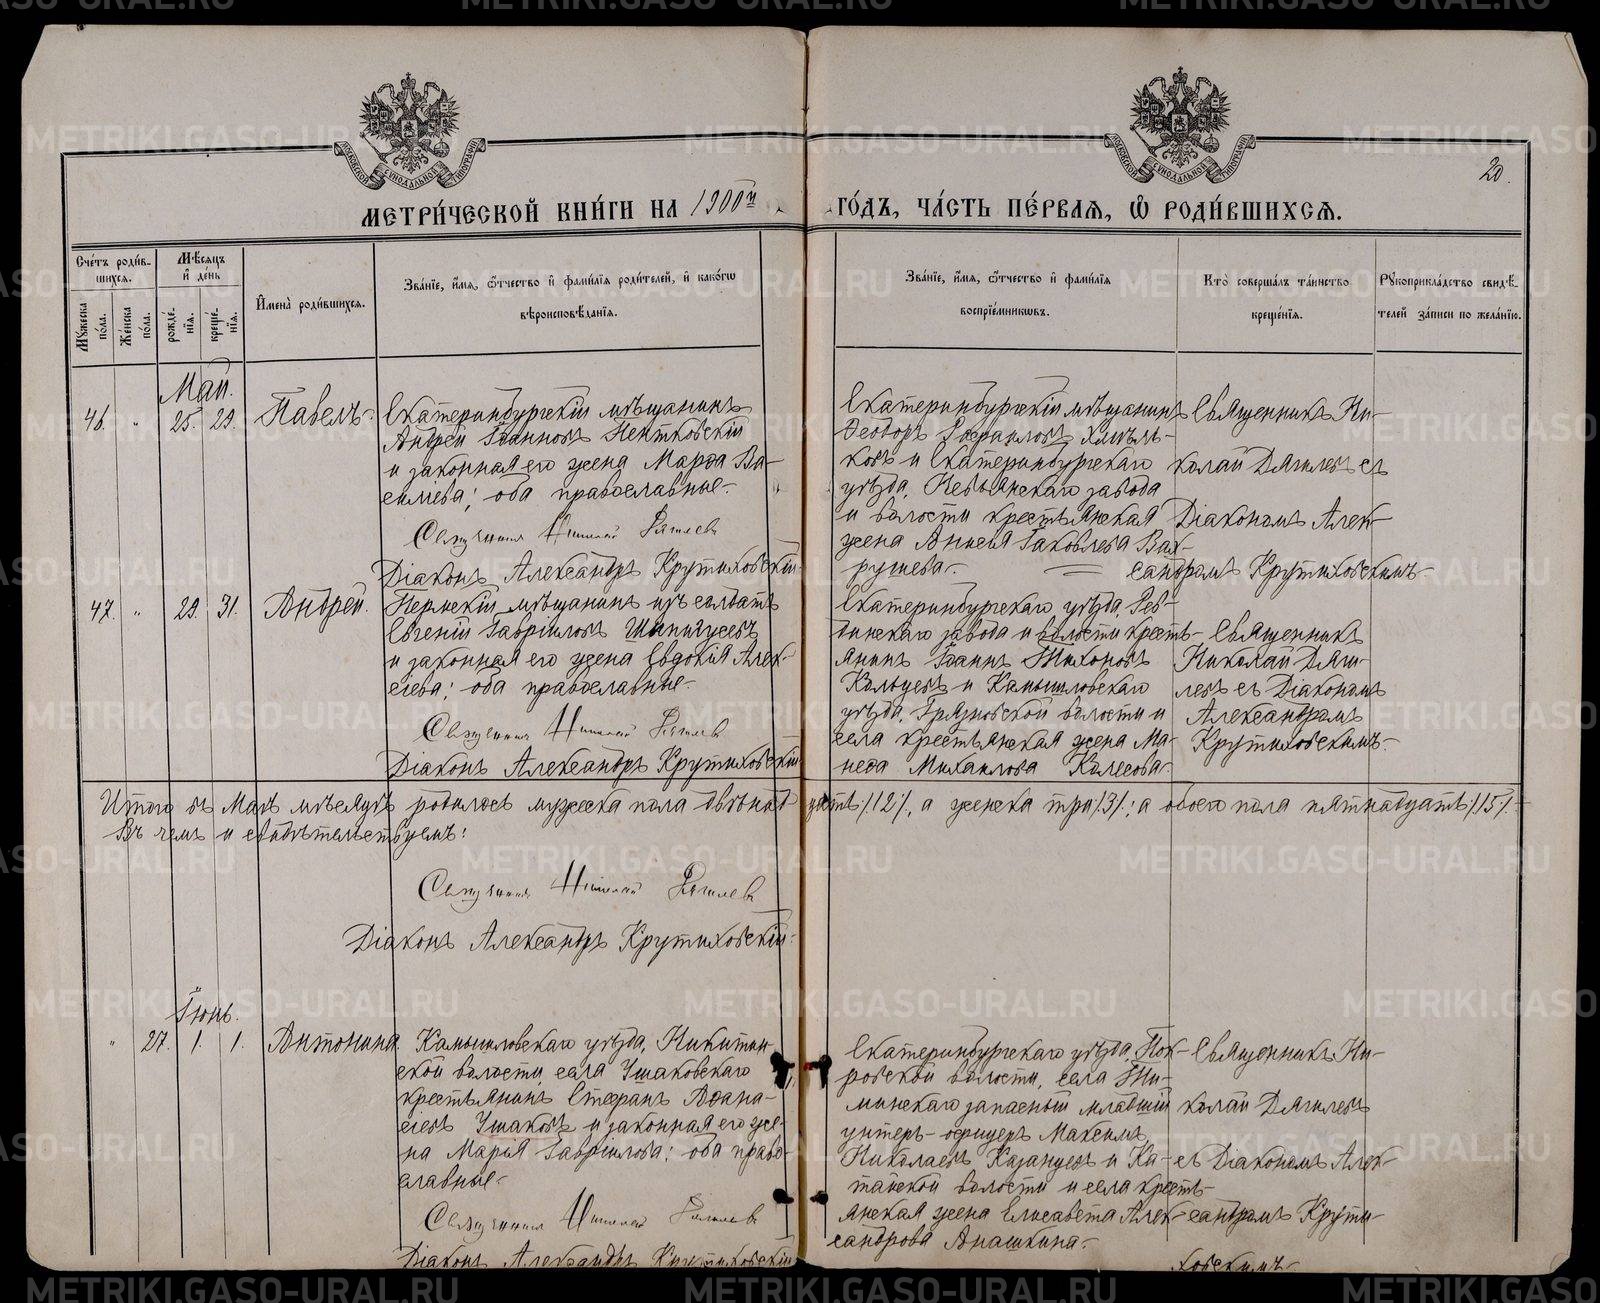 МЕТРИ́ЧЕСКОЙ КНИ́ГИ НА 1900й
ГО́ДЪ, ЧА́СТЬ ПЕ́РВАЯ, Ѽ РОДИ́ВШИХСЯ.
20.
Сче́тъ роди́вшихся.
Мѣ́сяцъ и де́нь
Мꙋ́жеска по́ла.
Же́нска по́ла.
рожде́нїѧ.
креще́нїѧ.
И҆мена̀ роди́вшихсѧ.
Зва́нїе, и҆́мѧ, ѻ҆́тчество и҆ фами́лїѧ роди́телей, и҆ како́гѡ
вѣроисповѣ́данїѧ.
Зва́нїе, и҆́мѧ, ѻ҆́тчество и҆ фами́лїѧ
воспрїе́мникѡвъ.
Кто̀ соверша́лъ та́инство
креще́нїѧ.
Рꙋкоприкла́дство свидѣ́-
телей за́писи по жела́нїю.
Май.
46. " 25. 29. Павелъ.
Екатеринбургскій мѣщанинъ
Андрей Іоанновъ Нентковскій
и законная его жена Марѳа Ва-
сильева; оба православные.
Священникъ Николай Дягилевъ
Діаконъ Александръ Крутиховскій.
Екатеринбургскій мѣщанинъ
Ѳеодоръ Гавриловъ Хмѣль-
ковъ и Екатеринбургскаго
уѣзда, Невьянскаго завода
и волости крестьянская
жена Анисія Іаковлева Вах-
рушева.
Священникъ Ни-
колай Дягилевъ съ
Діакономъ Алек-
сандромъ Крутиховскимъ.
47. " 29. 31. Андрей.
Пермскій мѣщанинъ изъ солдатъ
Евгеній Гавріиловъ Шипигусевъ
и законная его жена Евдокія Алек-
сеева; оба православные.
Священникъ Николай Дягилевъ
Діаконъ Александръ Крутиховскій
Екатеринбургскаго уѣзда, Рев-
динскаго завода и волости кресть-
янинъ Іоаннъ Тихоновъ
Кольцевъ и Камышловскаго
уѣзда, Грязновской волости и
села крестьянская жена Ма-
неѳа Михаилова Колесова.
Священникъ
Николай Дяги-
левъ съ Діакономъ
Александромъ
Крутиховскимъ.
Итого въ Маѣ мѣсяцѣ родилось мужеска пола двѣнадцать /12/, а женска три /3/; а обоего пола пятнадцать /15/.
Въ чемъ и свидѣтельствуемъ:
Священникъ Николай Дягилевъ
Діаконъ Александръ Крутиховскій.
Іюнь.
" 27. 1. 1. Антонина.
Камышловскаго уѣзда, Никитин-
ской волости, села Ушаковскаго
крестьянинъ Стефанъ Аѳана-
сіевъ Ушаковъ и законная его же-
на Марія Гавріилова; оба право-
славные.
Священникъ Николай Дягилевъ
Діаконъ Александръ Крутиховскій
Екатеринбургскаго уѣзда, Пок-
ровской волости, села Ти-
минскаго запасный младшій
унтеръ-офицеръ Максимъ
Николаевъ Казанцевъ и Ка-
тайской волости и села кресть-
янская жена Елисавета Алек-
сандрова Анашкина.
Священникъ Ни-
колай Дягилевъ
съ Діакономъ Алек-
сандромъ Крути-
ховскимъ.
METRIKI.GASO-URAL.RU